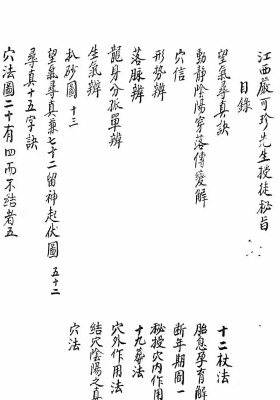 江西嚴可珍先生授徒秘旨
目錄
望氣尋真訣
動靜陰陽穿落傳變解
穴信
形勢辨
落脉辨
龍身分孤單辨
生氣辨
扒砂圖 十三
望氣尋真兼七十二留神起伏圖 五十二
尋真十五字訣
穴法圖二十有四而不結者五
十二杖法
胎息孕育解
断年期圖一
秘授穴內作用
十九葬法
穴外作用法
結穴陰陽之真
穴法